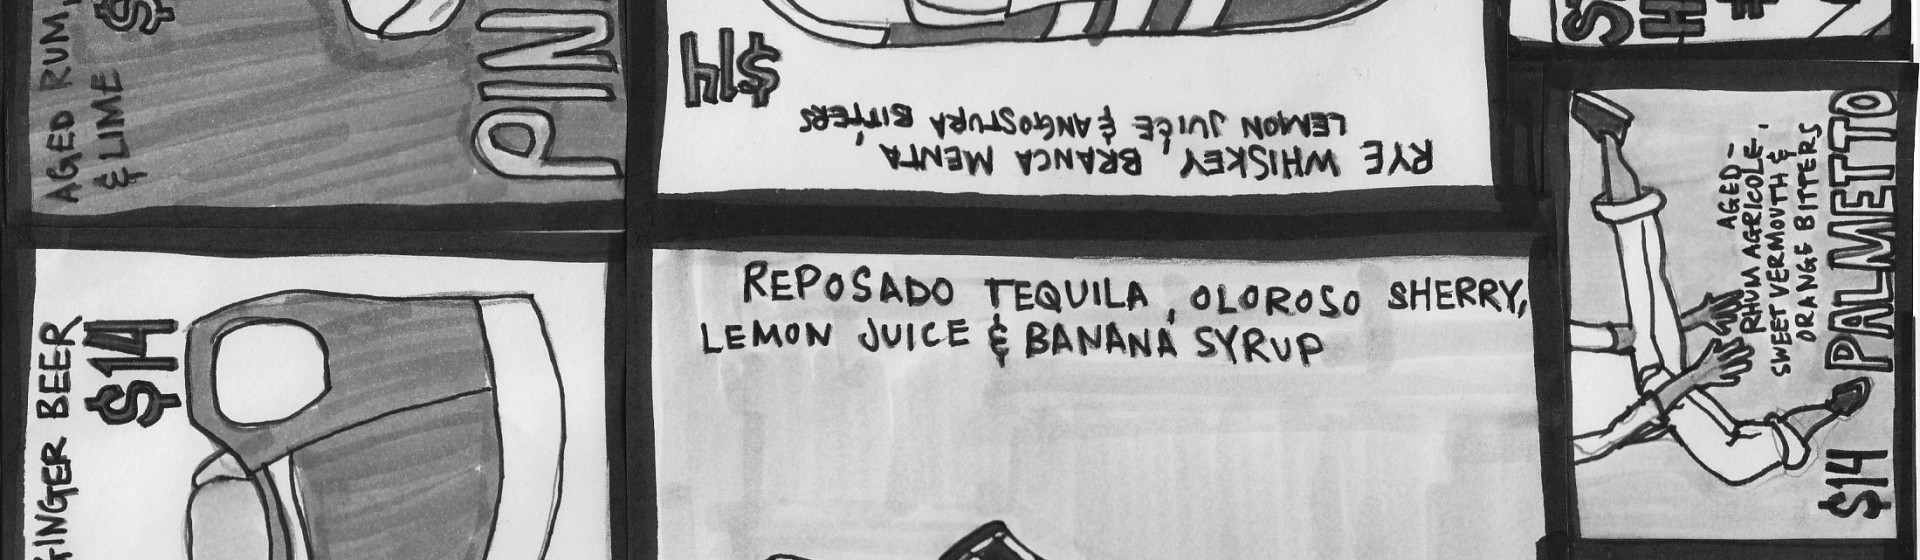 AGED RUM,
& LIME
$14
RYE WHISKEY, BRANCA MENTA,
LEMON JUICE & ANGOSTURA BITTERS
GINGER BEER
$14
REPOSADO TEQUILA, OLOROSO SHERRY,
LEMON JUICE & BANANA SYRUP
AGED
RHUM AGRICOLE,
SWEET VERMOUTH &
ORANGE BITTERS
PALMETTO
$14